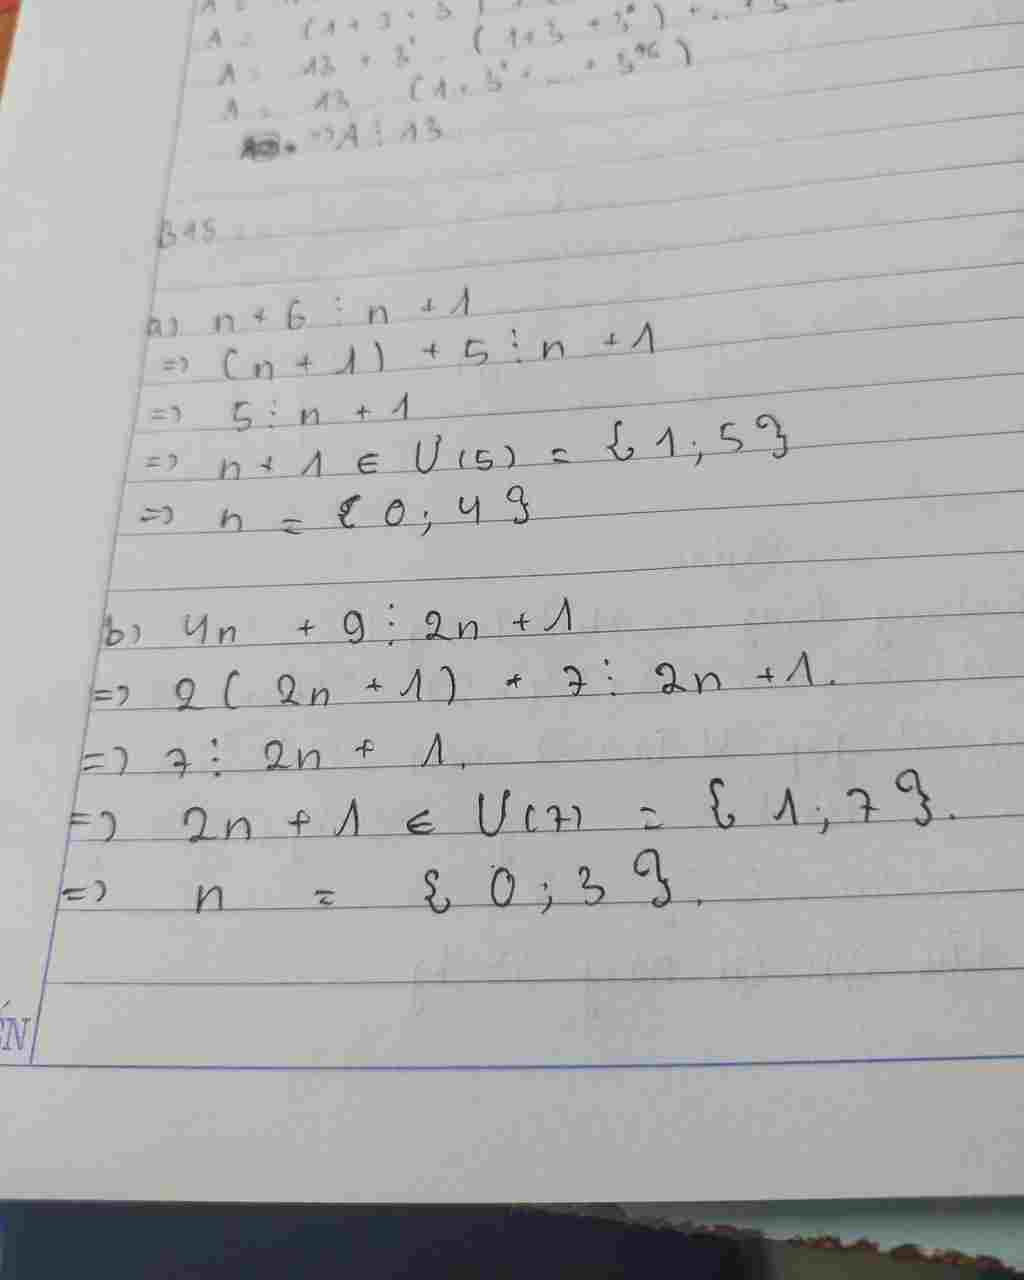 A = (1 + 3 + 3
A = 13 + 3 (1+3 + 3²) + ... + 3
A = 13 (1 + 3 + ... + 3⁹⁶)
=> A ⋮ 13
B15
a) n + 6 ⋮ n + 1
=> (n + 1) + 5 ⋮ n + 1
=> 5 ⋮ n + 1
=> n + 1 ∈ U(5) = {1; 5}
=> n = {0; 4}
b) 4n + 9 ⋮ 2n + 1
=> 2(2n + 1) + 7 ⋮ 2n + 1.
=> 7 ⋮ 2n + 1.
=> 2n + 1 ∈ U(7) = {1; 7}.
=> n = {0; 3}.